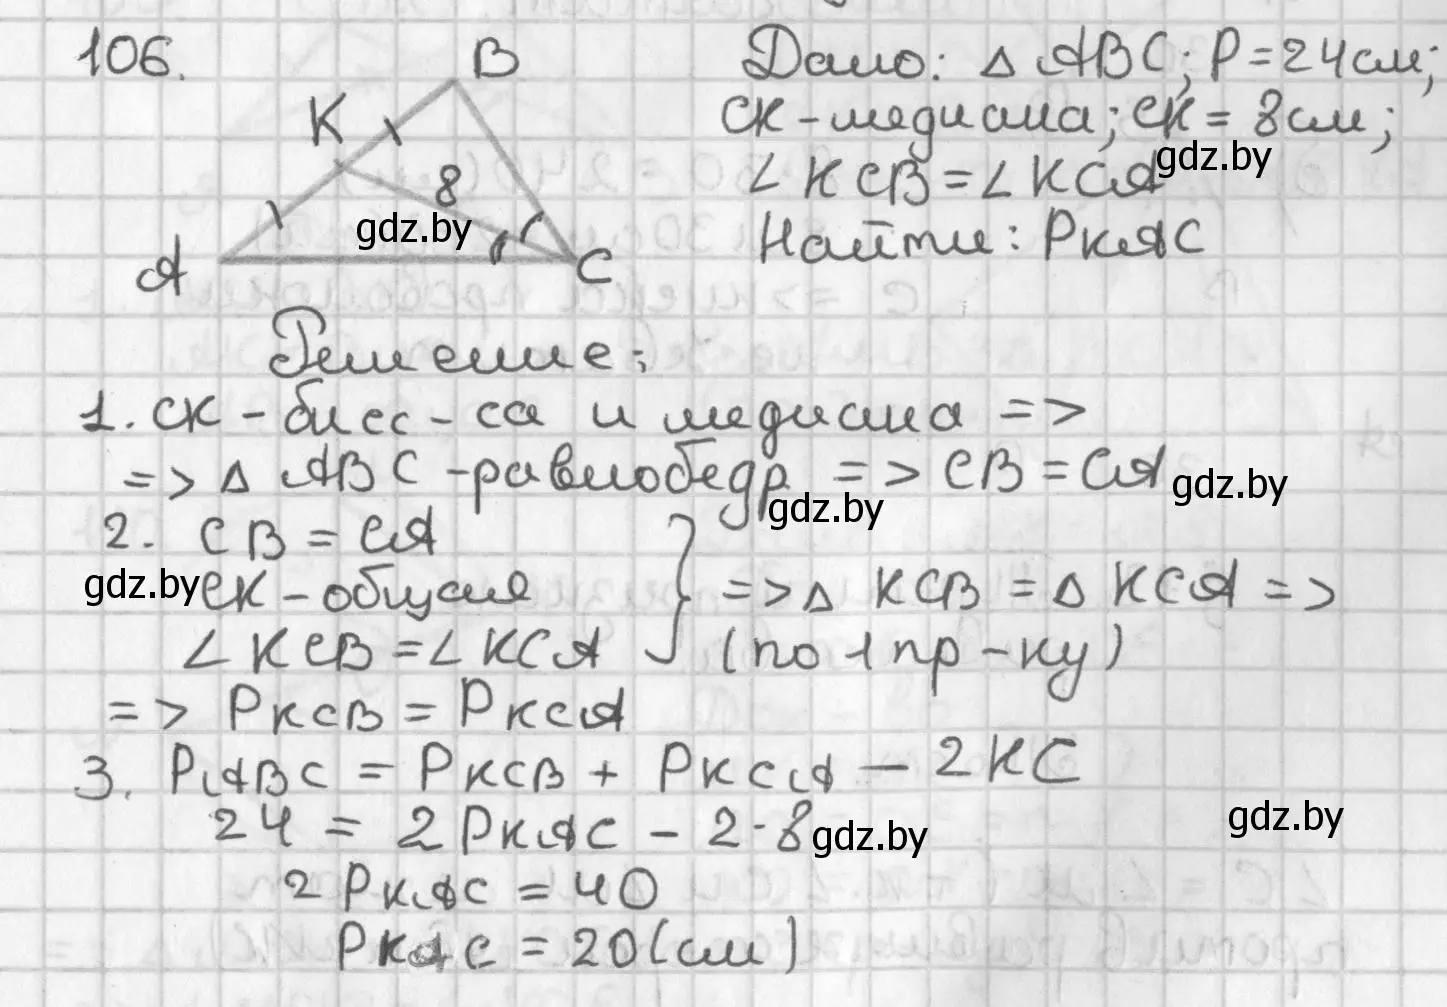 106.
B
K
8
A
C
Дано: △ ABC; P = 24 см;
CK - медиана; CK = 8 см;
∠ KCB = ∠ KCA
Найти: PKAC
Решение:
1. CK - бисс-са и медиана =>
=> △ ABC - равнобедр => CB = CA
2. CB = CA
CK - общая
∠ KCB = ∠ KCA } => △ KCB = △ KCA =>
(по 1 пр-ку)
=> PKCB = PKCA
3. PABC = PKCB + PKCA - 2KC
24 = 2PKAC - 2·8
2PKAC = 40
PKAC = 20(см)
gdz.by
gdz.by
gdz.by
gdz.by
gdz.by
gdz.by
gdz.by